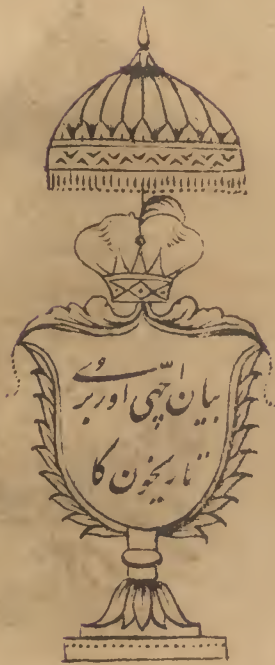 بیان اچھی اور بُرے
تاریخون کا